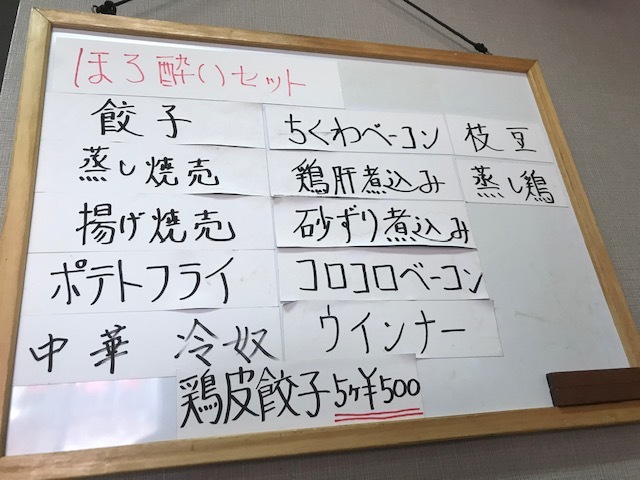 ほろ酔いセット
餃子
ちくわベーコン
枝豆
蒸し焼売
鶏肝煮込み
蒸し鶏
揚げ焼売
砂ずり煮込み
ポテトフライ
コロコロベーコン
中華 冷奴
ウインナー
鶏皮餃子5ケ¥500